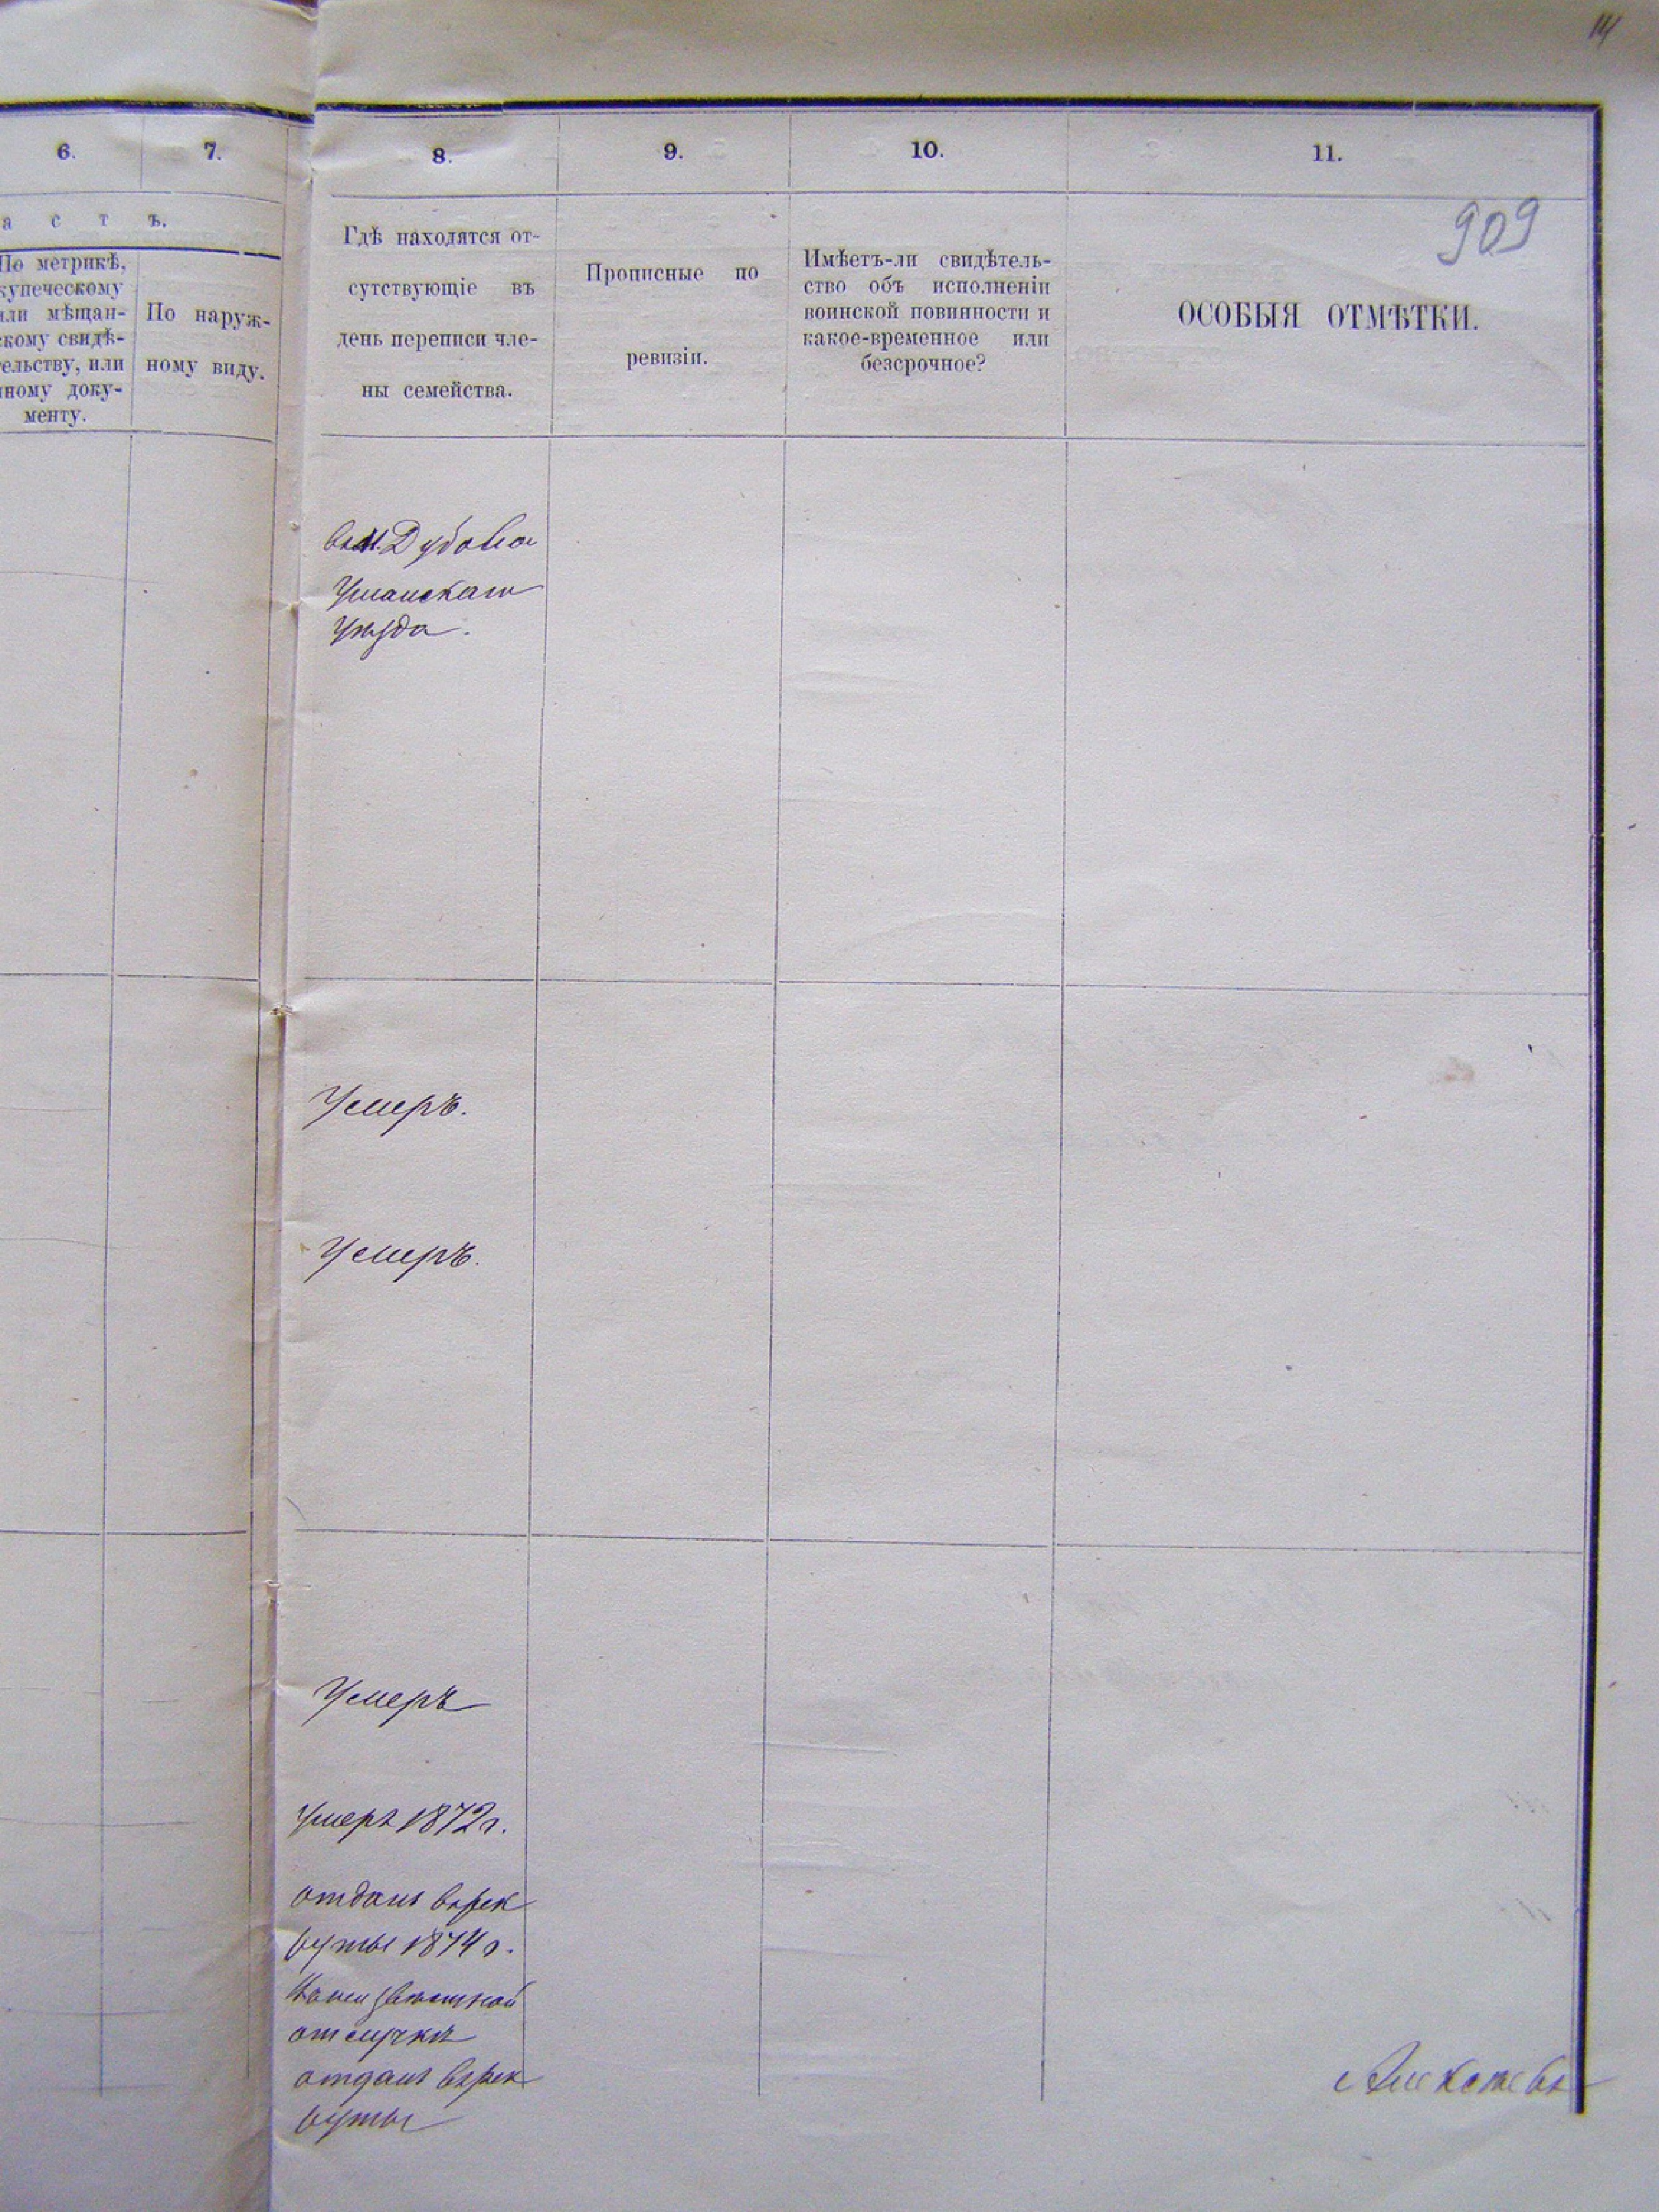 6.
7.
8.
9.
10.
11.
а с т ъ.
По метрикѣ,
купеческому
или мѣщан-
скому свидѣ-
тельству, или
иному доку-
менту.
По наруж-
ному виду.
Гдѣ находятся от-
сутствующіе въ
день переписи чле-
ны семейства.
Прописные по
ревизіи.
Имѣетъ-ли свидѣтель-
ство объ исполненіи
воинской повинности и
какое-временное или
безсрочное?
ОСОБЫЯ ОТМѢТКИ.
909
въ м. Дубова
Уманскаго
уѣзда.
Умеръ.
Умеръ.
Умеръ
умеръ 1872 г.
отданъ въ рек
руты 1874 г.
отлучкѣ
отданъ въ рек
руты